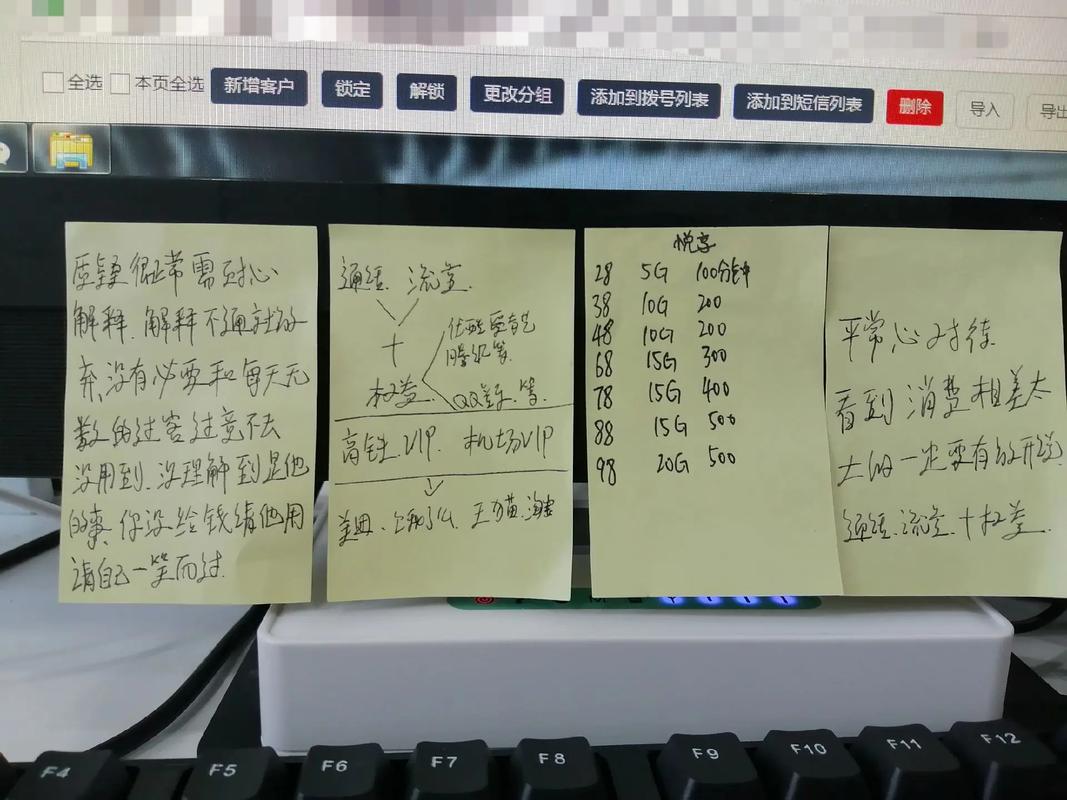 全选 本页全选 新增客户 锁定 解锁 更改分组 添加到拨号列表 添加到短信列表 删除 导入 导出
质疑很正常需要耐心
解释、解释不通就放
弃,没有必要和每天无
数的过客过意不去
没用到、没理解到是他
的事、你没给钱绩他用
请自己一笑而过.
通话、流量.
+
优酷爱奇艺
腾讯等.
权益. QQ音乐.等.
高铁VIP. 机场VIP
美团、饿了么. 天猫.淘宝
悦享
28 5G 100分钟
38 10G 200
48 10G 200
68 15G 300
78 15G 400
88 15G 500
98 20G 500
平常心对待.
看到消费相差太
大的一定要有效开说
通话.流量.+权益.
F4 F5 F6 F7 F8 F9 F10 F11 F12